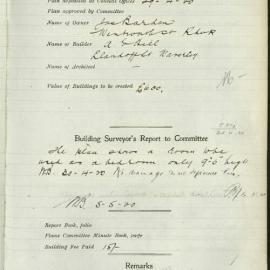 Plan deposited at Council Office 29-4-20
Plan approved by Committee
Name of Owner Jas Barden
Wentworth St Rdwk
Name of Builder A E Hill
Llandaff St Waverley
Name of Architect
Value of Buildings to be erected £600.
Building Surveyor's Report to Committee
The plan shows a room who
used as a bedroom only 9'0" high
30-4-20 No damage
5-5-20
Report Book, folio
Plans Committee Minute Book, page
Building Fee Paid 15/-
Remarks